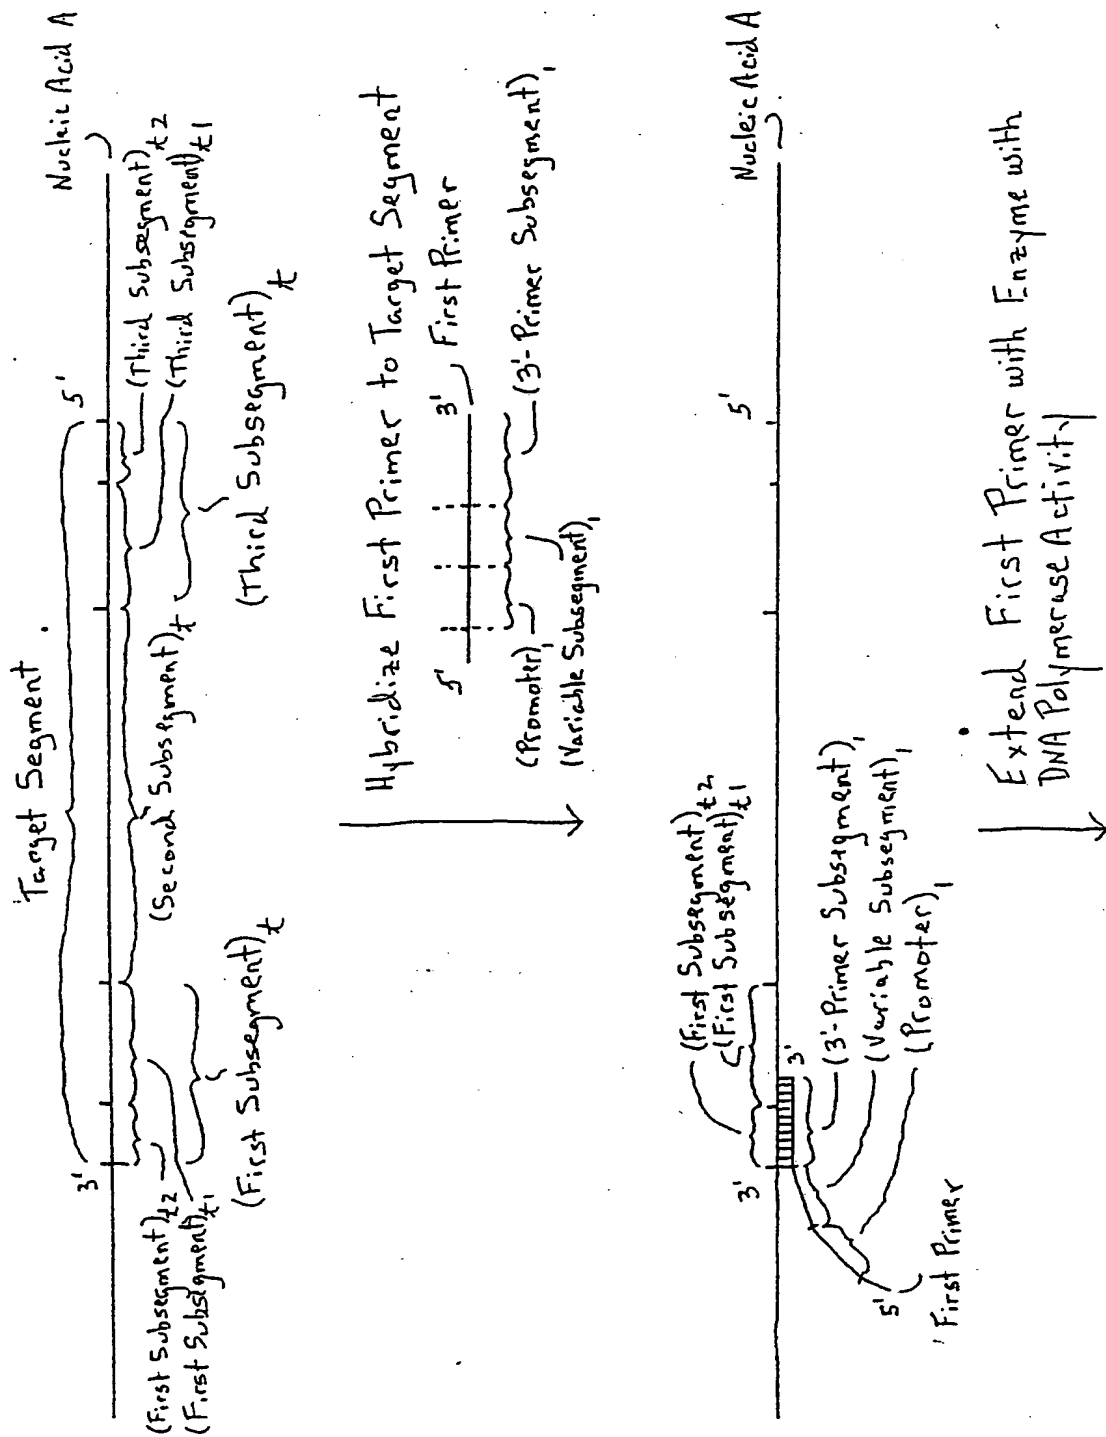 Target Segment
3'
5'
Nucleic Acid A
(First Subsegment)t2
(First Subsegment)t1
(First Subsegment)t
(Second Subsegment)t
(Third Subsegment)t2
(Third Subsegment)t1
(Third Subsegment)t
Hybridize First Primer to Target Segment
5'
3'
First Primer
(Promoter)1
(Variable Subsegment)1
(3'-Primer Subsegment)1
(First Subsegment)t2
(First Subsegment)t1
3'
5'
Nucleic Acid A
3'
(3'-Primer Subsegment)1
(Variable Subsegment)1
(Promoter)1
5'
First Primer
Extend First Primer with Enzyme with
DNA Polymerase Activity